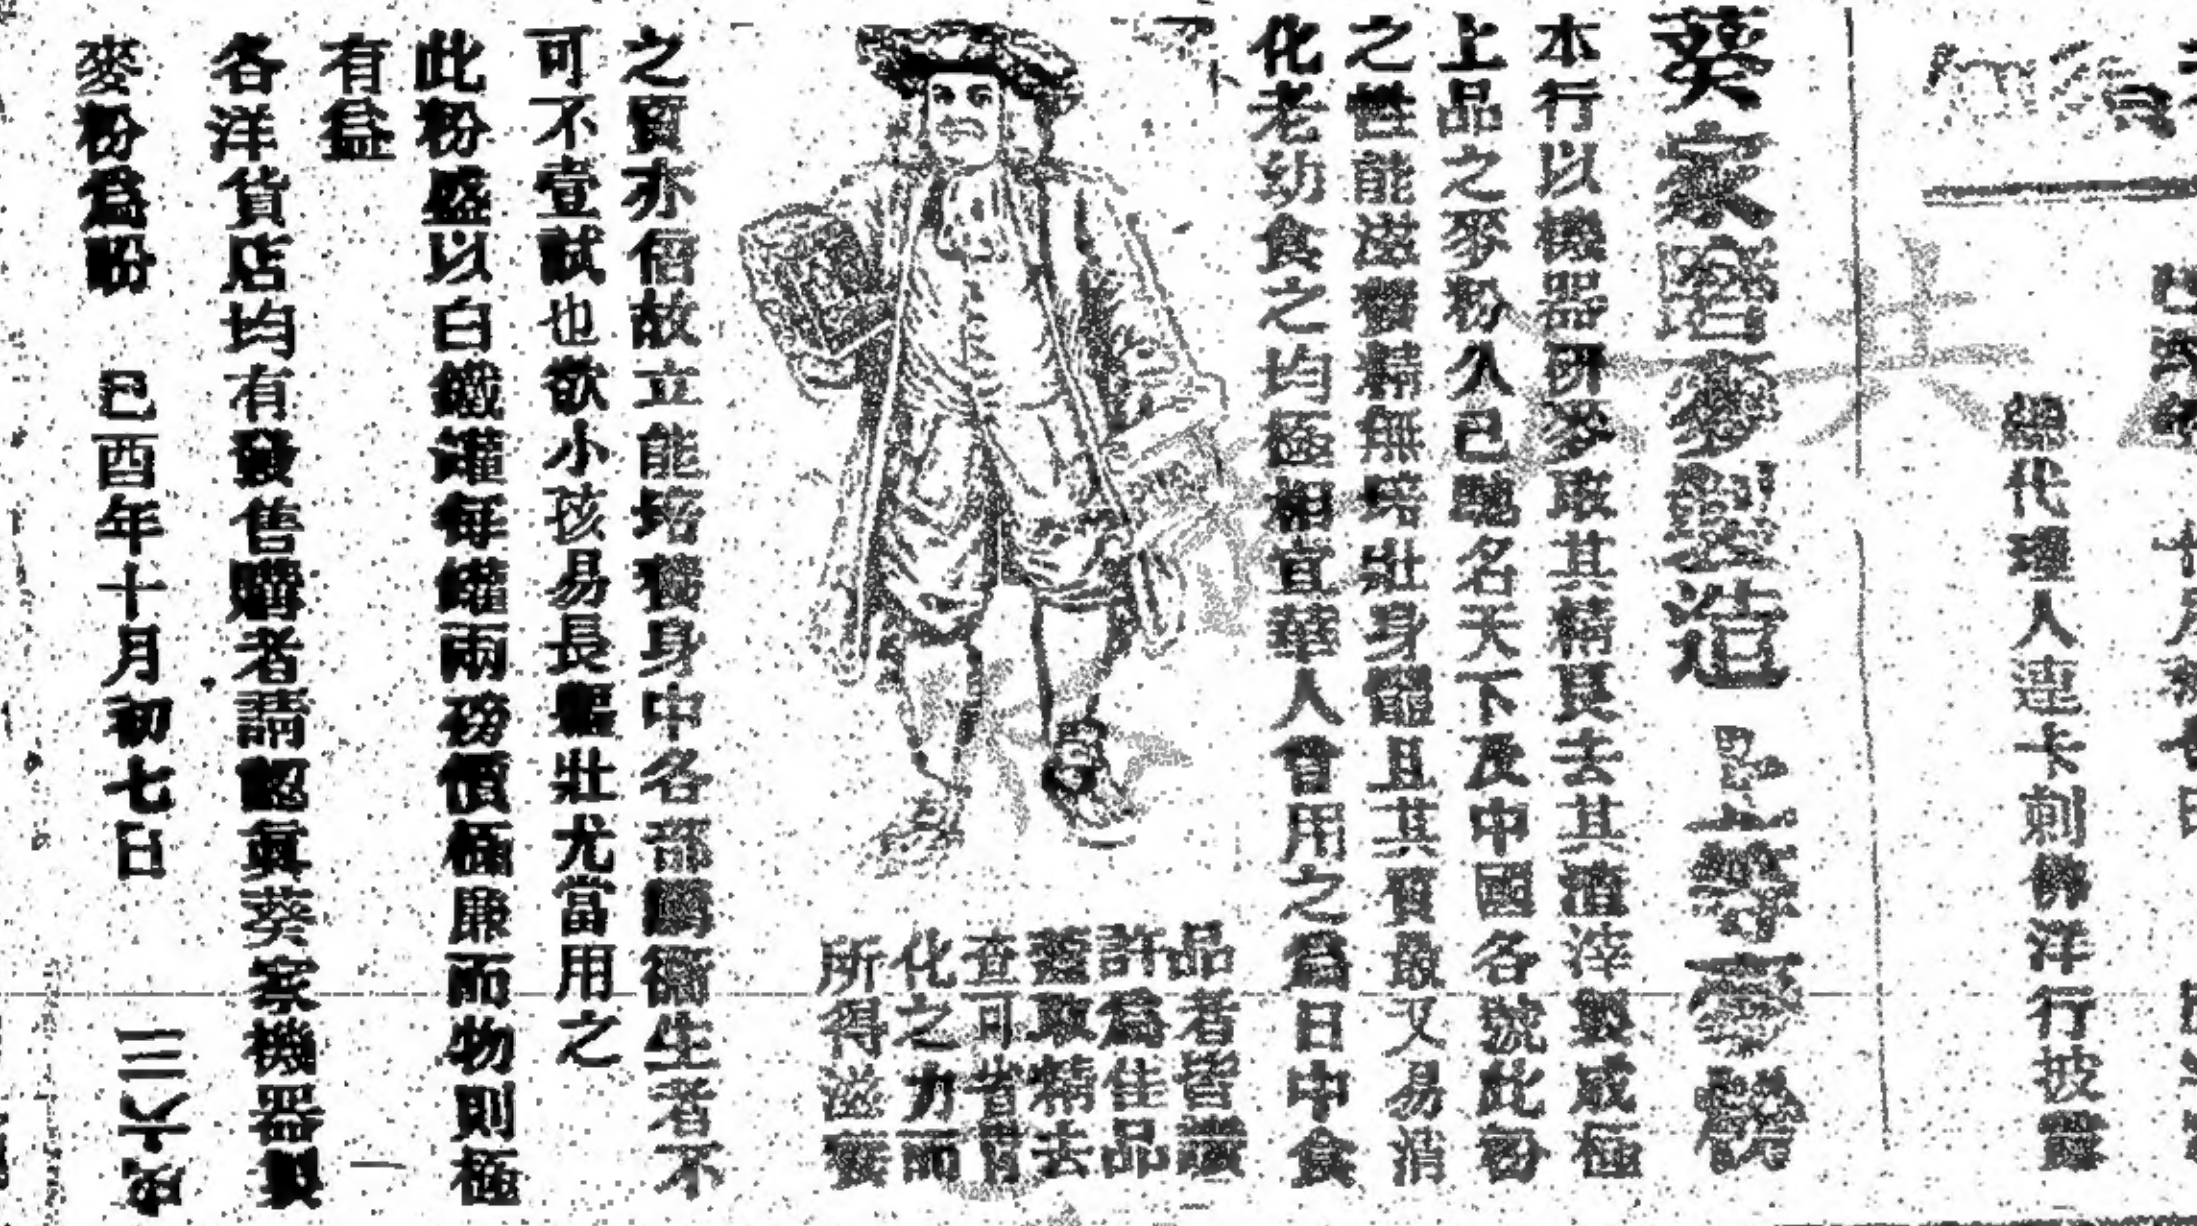 總代理人連卡剌佛洋行披露
葵家磨麥製造上等麥粉
本行以機器研麥取其精更去其渣滓製成極
上品之麥粉久已馳名天下及中國各號此粉
之性能滋養精無培壯身體且其質最又易消
化老幼食之均極相宜華人會用之爲日中食
品者皆讚
許爲佳品
蓋取精去
查可省胃
化之力而
所得滋養
之質亦倍故立能培養身中各部關衛生者不
可不壹試也欲小孩易長軀壯尤當用之
此粉盛以白鐵罐每罐兩磅價極廉而物則極
有益
各洋貨店均有發售購者請認眞葵家機器製
麥粉爲盼 己酉年十月初七日